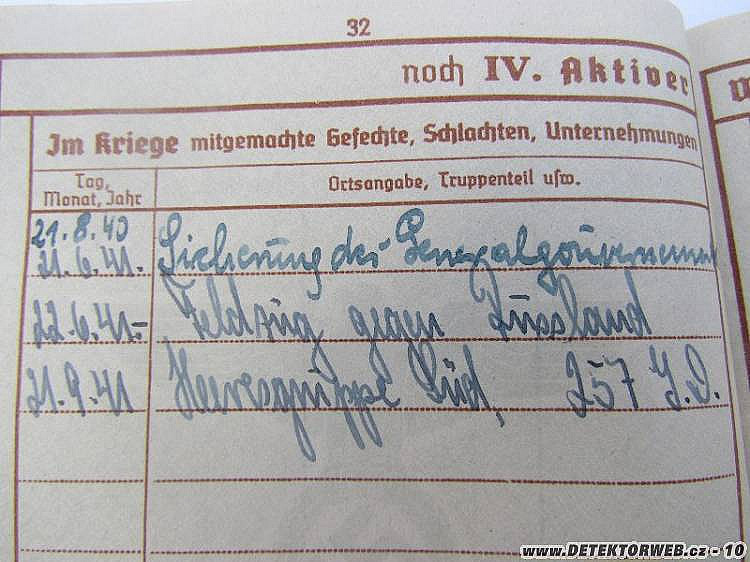 32
noch IV. Aktiver
Im Kriege mitgemachte Gefechte, Schlachten, Unternehmungen
Tag, Monat, Jahr
Ortsangabe, Truppenteil usw.
21.8.40
21.6.41. Sicherung des Generalgouvernement
22.6.41.- Feldzug gegen Russland
21.9.41 Heeresgruppe Süd, 257 I.D.
www.DETEKTORWEB.cz - 10